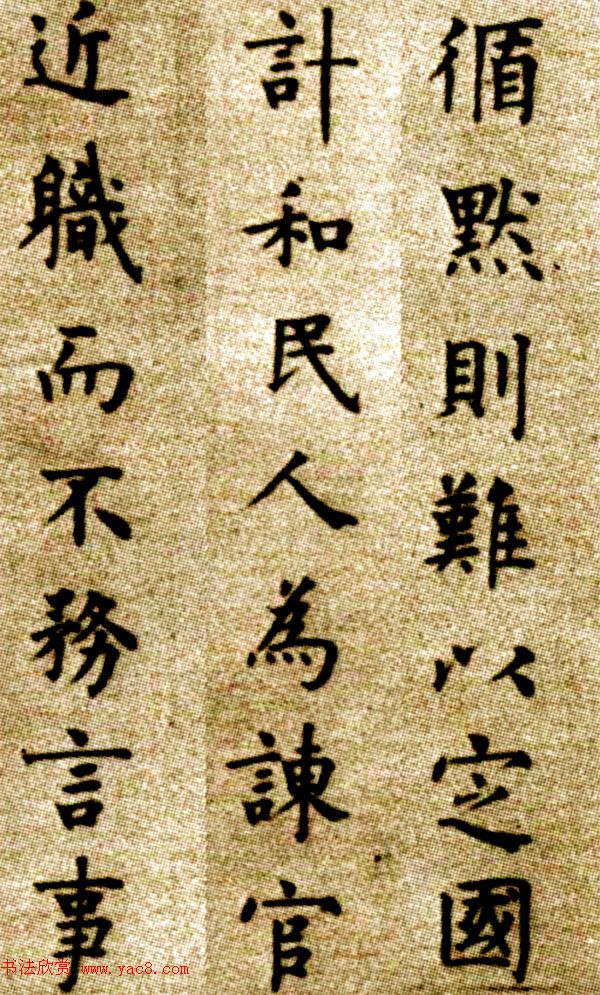 循默則難以定國
計和民人為諫官
近職而不務言事
书法欣赏 www.yac8.com